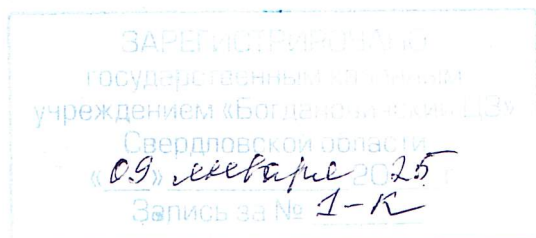 ЗАРЕГИСТРИРОВАНО
государственным казенным
учреждением «Богдановичский ЦЗ»
Свердловской области
«09» января 2025 г.
Запись за № 1-К